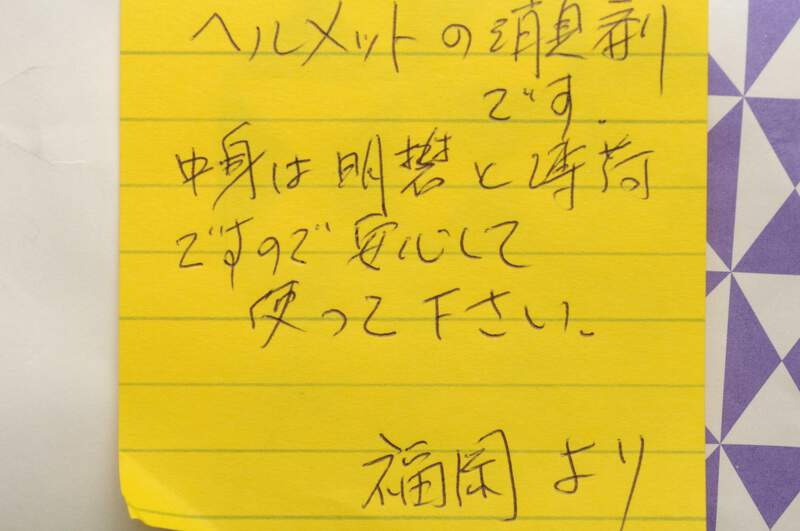 ヘルメットの消臭剤
です。
中身は明礬と薄荷
ですので安心して
使って下さい。
福岡より